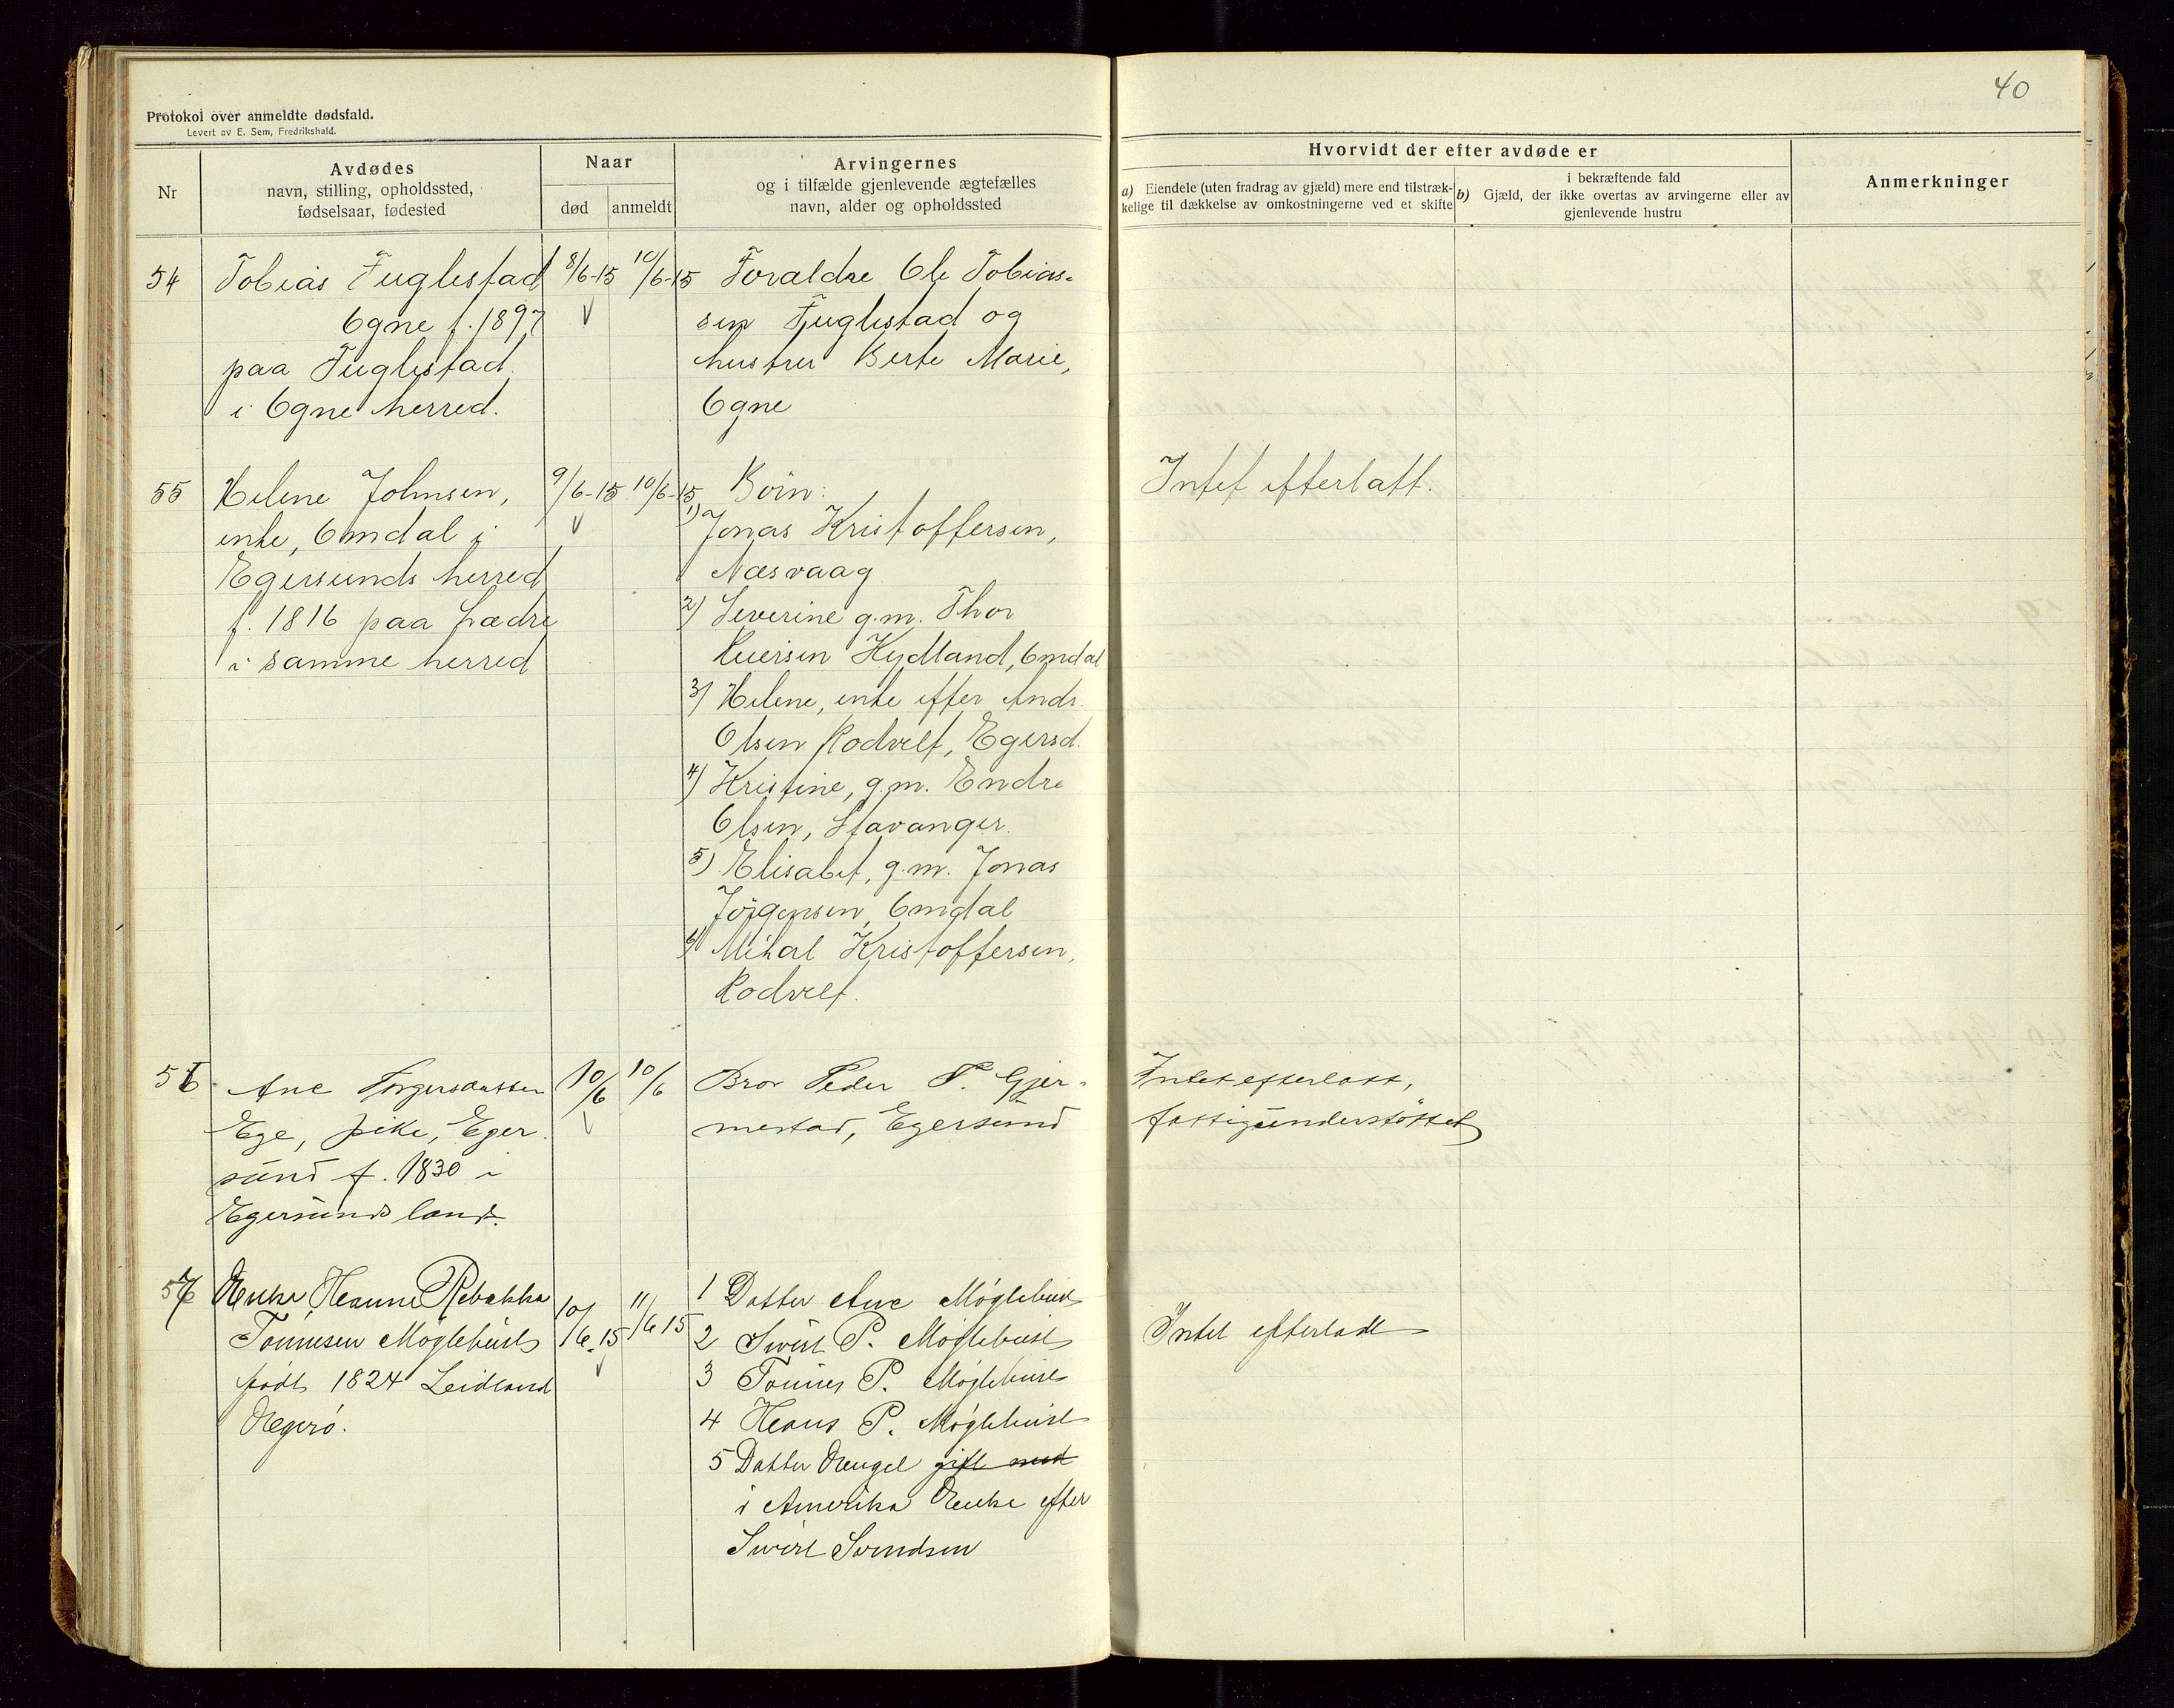 40
Protokol over anmeldte dødsfald.
Levert av E. Sem, Fredrikshald.
Nr
Avdødes
navn, stilling, opholdssted,
fødselsaar, fødested
Naar
død
anmeldt
Arvingernes
og i tilfælde gjenlevende ægtefælles
navn, alder og opholdssted
Hvorvidt der efter avdøde er
a) Eiendele (uten fradrag av gjæld) mere end tilstræk-
kelige til dækkelse av omkostningerne ved et skifte
i bekræftende fald
b) Gjæld, der ikke overtas av arvingerne eller av
gjenlevende hustru
Anmerkninger
54
Tobias Fuglestad
Ogne f. 1897
paa Fuglestad
i Ogne herred.
8/6-15
10/6-15
Foraldre Ole Tobias-
sen Fuglestad og
hustru Berte Marie,
Ogne
55
Helene Johnsen,
enke, Omdal i
Egersunds herred
f. 1816 paa Lædre
i samme herred
9/6-15
10/6-15
Börn:
1) Jonas Kristoffersen,
Næsvaag
2) Severine g.m. Thor
Iversen Hydland, Omdal
3) Helene, enke efter Ands.
Olsen Rodvelt, Egersd.
4) Kristine, g.m. Endre
Olsen, Stavanger.
5) Elisabet, g.m. Jonas
Jörgensen, Omdal
6) Mikal Kristoffersen,
Rodvelt.
Intet efterlatt.
56
Ane Torgersdatter
Ege, pike, Eger
sund f. 1830 i
Egersunds land.
10/6
10/6
Bror Peder T. Gjer-
mestad, Egersund
Intet efterlatt,
fattigunderstöttet
57
Enke Hanne Rebekka
Tönnesen Möglebust
födt 1824 Leidland
Egerö.
10/6-15
11/6 15
1 Datter Ane Möglebust
2 Sivert P. Möglebust
3 Tönnes P. Möglebust
4 Hans P. Möglebust
5 Datter Engel gift med
i Amerika Enke efter
Sivert Svendsen
Intet efterladt